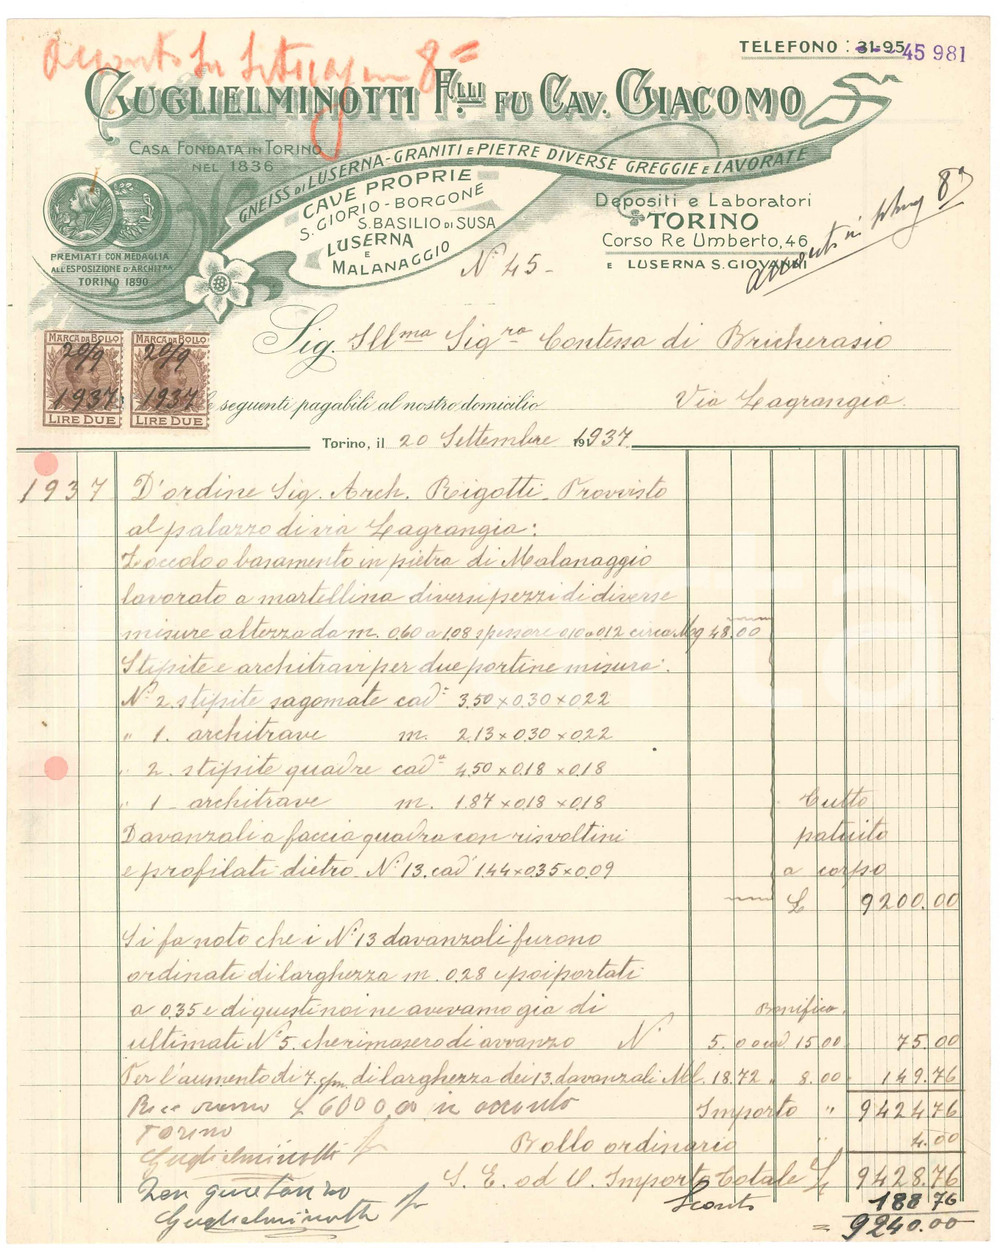 TELEFONO : 31-95 45 981
Acconto in
8
GUGLIELMINOTTI F.LLI FU CAV. GIACOMO
CASA FONDATA IN TORINO
NEL 1836
GNEISS DI LUSERNA-GRANITI E PIETRE DIVERSE GREGGIE E LAVORATE
CAVE PROPRIE
S. GIORIO - BORGONE
S. BASILIO DI SUSA
LUSERNA
E
MALANAGGIO
PREMIATI CON MEDAGLIA
ALL'ESPOSIZIONE D'ARCHITRA
TORINO 1890
Depositi e Laboratori
TORINO
Corso Re Umberto, 46
E LUSERNA S. GIOVANNI
N° 45-
Sig. Ill.ma Sig.ra Contessa di Bricherasio
MARCA DA BOLLO MARCA DA BOLLO
20/9 20/9
1937 1937
LIRE DUE LIRE DUE
le seguenti pagabili al nostro domicilio Via Lagrangia
Torino, il 20 Settembre 1937
1937 D'ordine Sig. Arch. Rigotti. Provvisto
al palazzo di via Lagrangia:
Zoccolo o basamento in pietra di Malanaggio
lavorato a martellina diversi pezzi di diverse
misure altezza da m. 0.60 a 1.08 spessore 0.10 a 0.12 circa Mq 48.00
Stipite e architravi per due portine misura:
N° 2 stipite sagomate cad.a 3.50 x 0.30 x 0.22
" 1. architrave m. 2.13 x 0.30 x 0.22
" 2. stipite quadre cad.a 4.50 x 0.18 x 0.18
" 1 - architrave m. 1.87 x 0.18 x 0.18 Tutto
Davanzali a faccia quadra con risvoltini patuito
e profilati dietro N° 13. cad. 1.44 x 0.35 x 0.09 a corpo
£ 9200.00
Si fa noto che i N° 13 davanzali furono
ordinati di larghezza m. 0.28 e poi portati
a 0.35 e di questi noi ne avevamo gia di Bonifico.
ultimati N° 5. che rimasero di avvanzo N° 5.00 cad. 15.00 75.00
Per l'aumento di 7 c/m. di larghezza dei 13. davanzali Ml. 18.72 " 8.00 149.76
Ricevemmo £ 6000,00 in acconto Importo " 9424.76
Torino Bollo ordinario " 4.00
Guglielminotti
S. E. od O. Importo totale £ 9428.76
Per quietanza Sconto 188 76
Guglielminotti = 9240.00